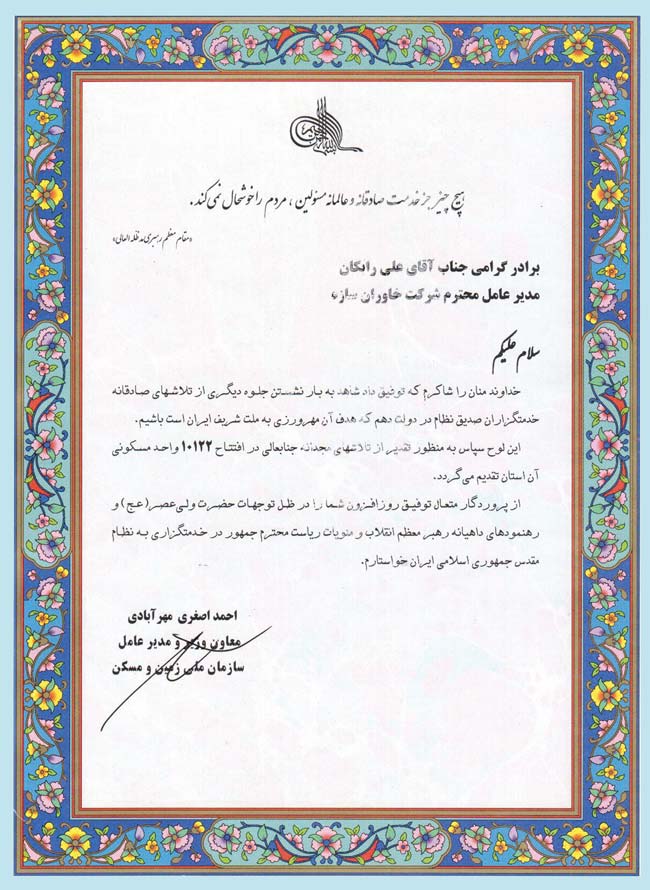 هیچ چیز جز خدمت صادقانه و عالمانه مسئولین، مردم را خوشحال نمی‌کند.
«مقام معظم رهبری مدظله العالی»
برادر گرامی جناب آقای علی رانکان
مدیر عامل محترم شرکت خاوران سازه
سلام علیکم
خداوند منان را شاکرم که توفیق داد شاهد به بار نشستن جلوه دیگری از تلاشهای صادقانه
خدمتگزاران صدیق نظام در دولت دهم که هدف آن مهرورزی به ملت شریف ایران است باشیم.
این لوح سپاس به منظور تقدیر از تلاشهای مجدانه جنابعالی در افتتاح ۱۰۱۲۲ واحد مسکونی
آن استان تقدیم می‌گردد.
از پروردگار متعال توفیق روزافزون شما را در ظل توجهات حضرت ولی‌عصر (عج) و
رهنمودهای داهیانه رهبر معظم انقلاب و منویات ریاست محترم جمهور در خدمتگزاری به نظام
مقدس جمهوری اسلامی ایران خواستارم.
احمد اصغری مهرآبادی
معاون وزیر و مدیر عامل
سازمان ملی زمین و مسکن